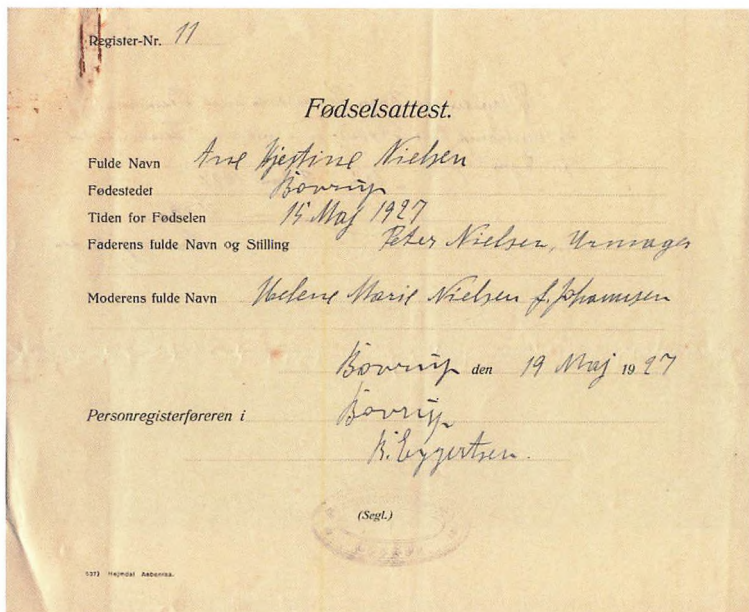 Register-Nr. 11
Fødselsattest.
Fulde Navn Ane Kjestine Nielsen
Fødestedet Bovrup
Tiden for Fødselen 15 Maj 1927
Faderens fulde Navn og Stilling Peter Nielsen, Urmager
Moderens fulde Navn Helene Marie Nielsen f. Johannsen
Bovrup den 19 Maj 1927
Personregisterføreren i Bovrup
Eggertsen.
(Segl.)
Hejmdal Aabenraa.